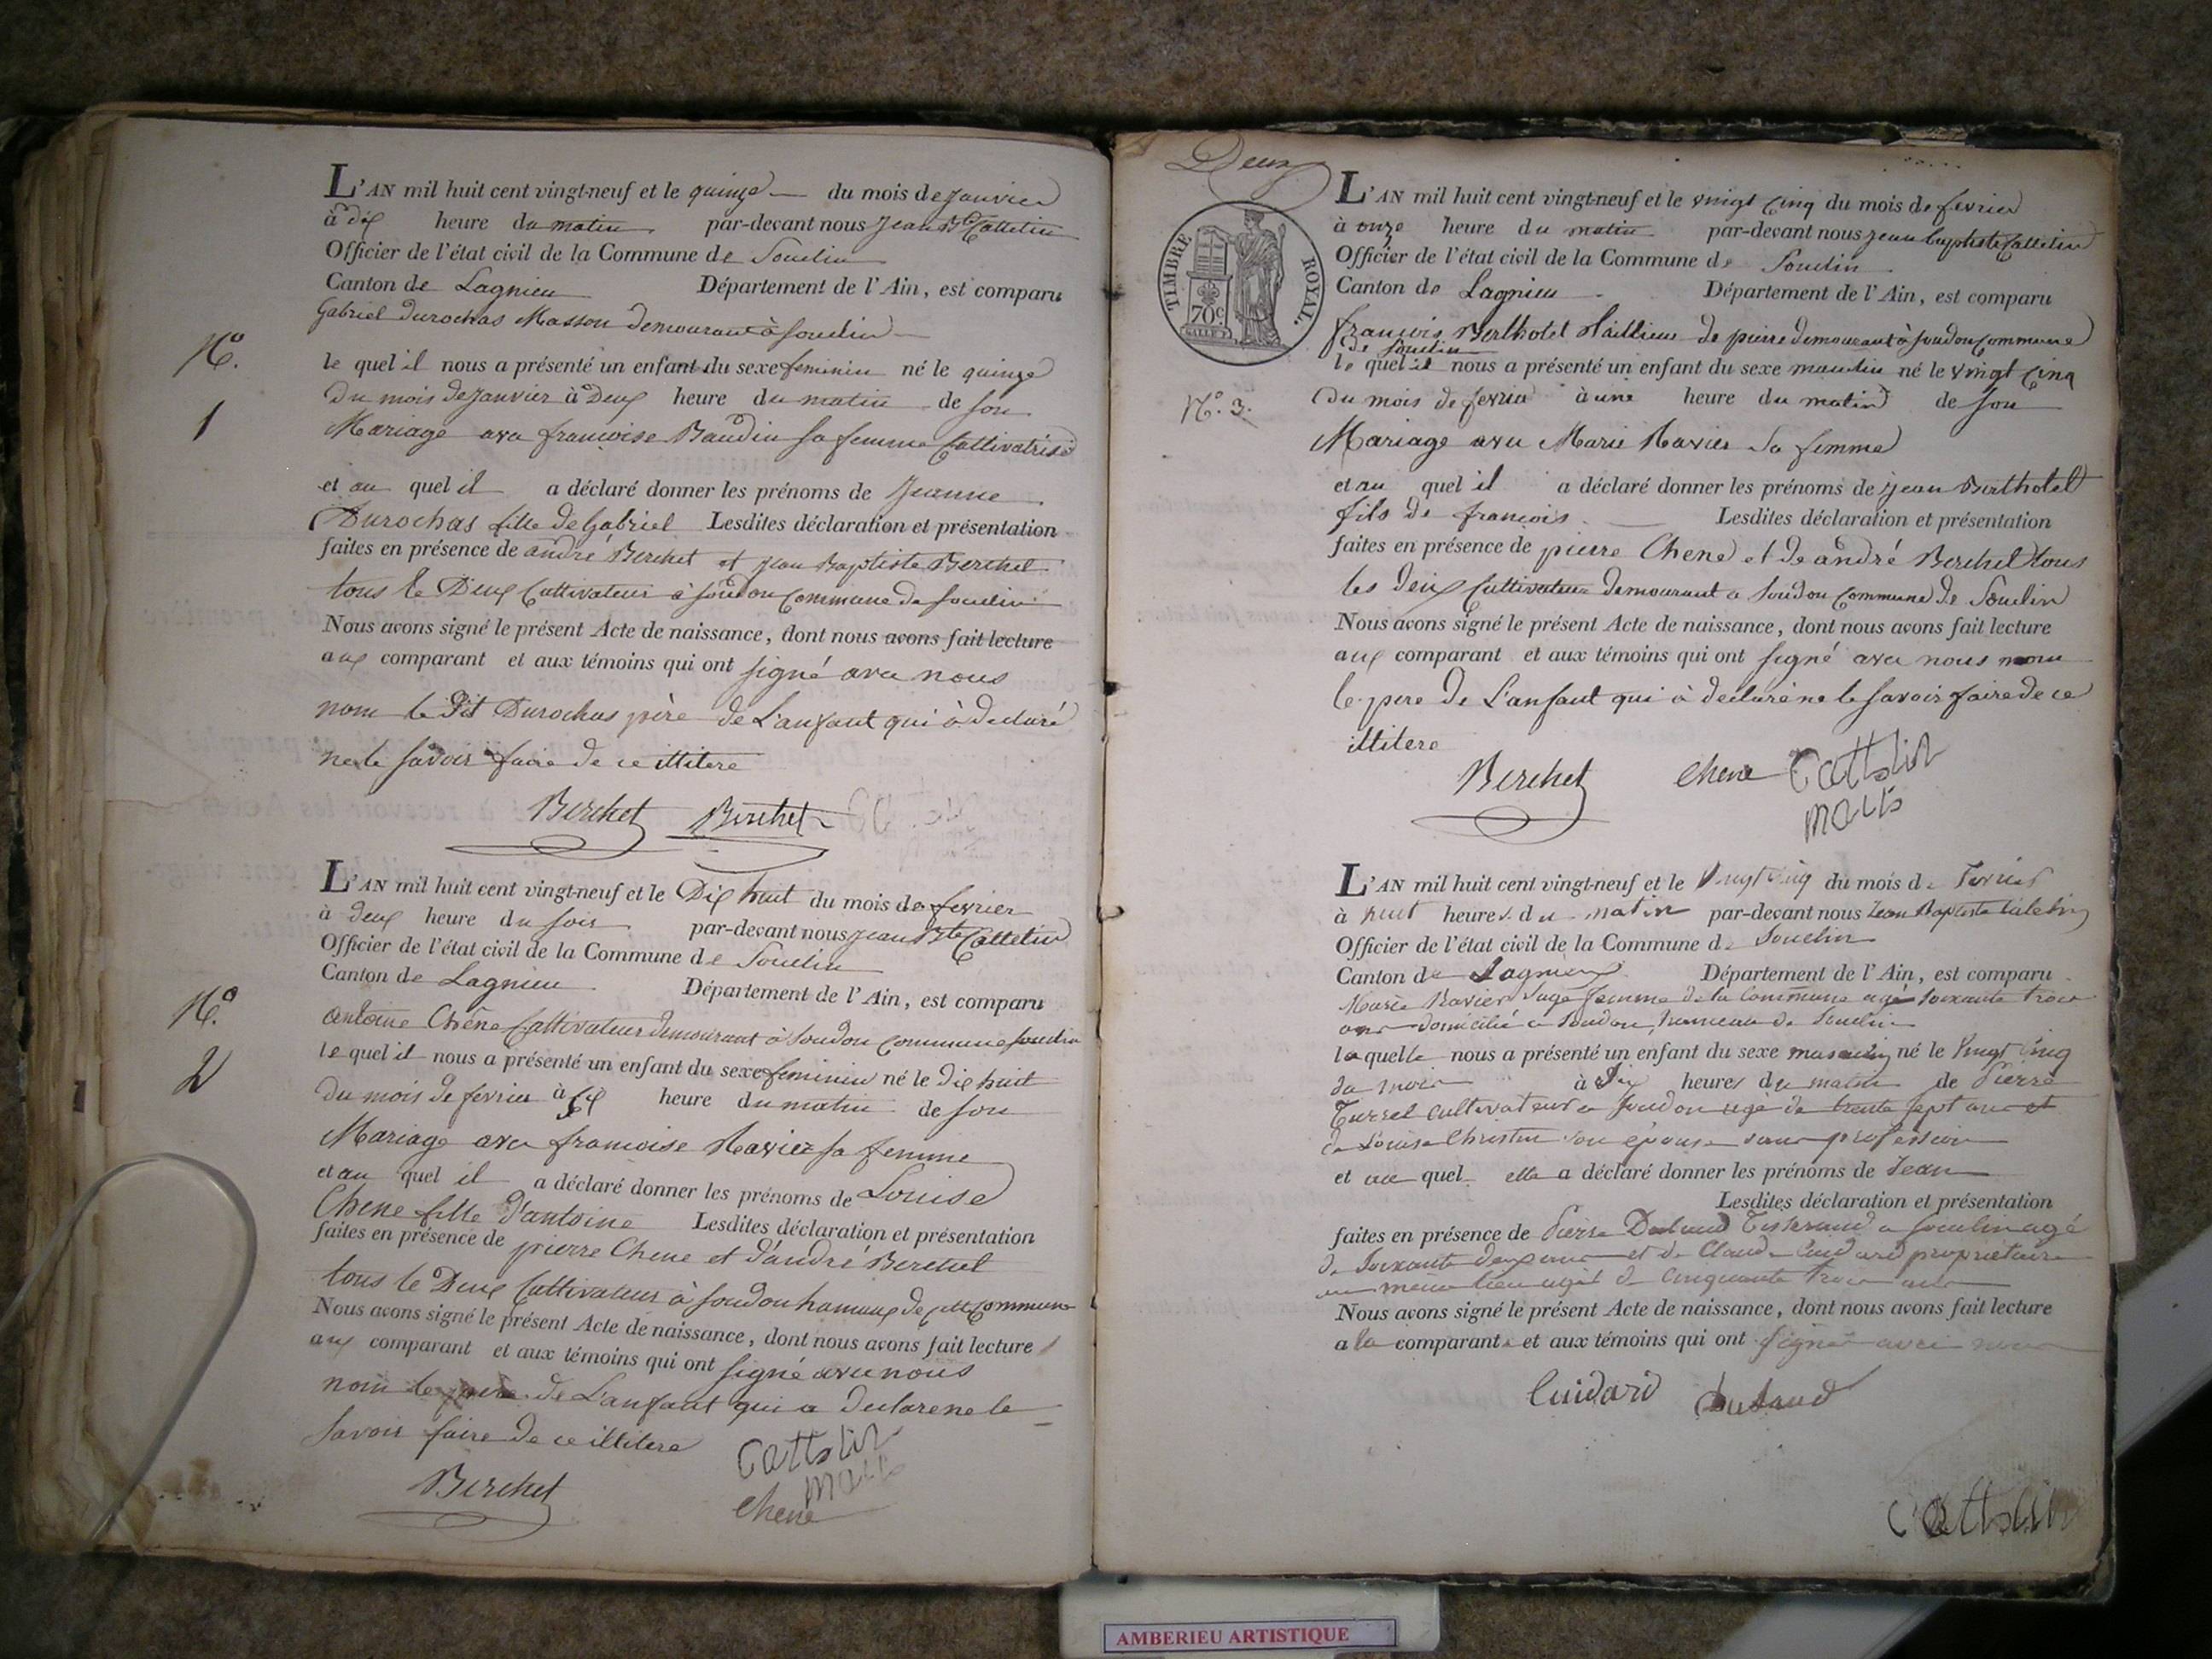 L'AN mil huit cent vingt-neuf et le quinze du mois de janvier
à dix heure du matin par-devant nous jean Bte Cattelin
Officier de l'état civil de la Commune de Souclin
Canton de Lagnieu Département de l'Ain, est comparu
Gabriel Durochas Masson demeurant à Souclin
N°.
1
le quel il nous a présenté un enfant du sexe feminin né le quinze
Du mois de janvier à Deux heure du matin de son
Mariage avec francoise Baudin sa femme Cultivatrise
et au quel il a déclaré donner les prénoms de Jeanne
Durochas fille de Gabriel Lesdites déclaration et présentation
faites en présence de andré Berchet et jean Baptiste Berchet
tous le Deux Cultivateur à soudon commune de souclin
Nous avons signé le présent Acte de naissance, dont nous avons fait lecture
aux comparant et aux témoins qui ont signé avec nous
nom le Dit Durochas père de L'anfant qui à declaré
ne le savoir faire de ce illitere
Berchet Berchet
L'AN mil huit cent vingt-neuf et le Dix huit du mois de fevrier
à deux heure du soir par-devant nous jean Bte Cattelin
Officier de l'état civil de la Commune de Souclin
Canton de Lagnieu Département de l'Ain, est comparu
N°.
2
antoine Chêne Cultivateur demeurant à Soudon commune souclin
le quel il nous a présenté un enfant du sexe feminin né le dix huit
Du mois de fevrier à six heure du matin de son
Mariage avec francoise Ravier sa femme
et au quel il a déclaré donner les prénoms de Louise
Chene fille d'antoine Lesdites déclaration et présentation
faites en présence de pierre Chene et d'andré Berchet
tous le Deux Cultivateur à soudon hamaux de cette Commune
Nous avons signé le présent Acte de naissance, dont nous avons fait lecture
aux comparant et aux témoins qui ont signé avec nous
nom le pere de L'anfant qui a declare ne le
savoir faire de ce illitere
Cattelin
maire
Berchet
Chene
Deux
TIMBRE ROYAL.
70c.
L'AN mil huit cent vingt-neuf et le vingt cinq du mois de fevrier
à onze heure du matin par-devant nous jean baptiste Cattelin
Officier de l'état civil de la Commune de Souclin
Canton de Lagnieu Département de l'Ain, est comparu
francois Berthotet de pierre demeurant à soudon commune
de souclin
N°. 3.
le quel il nous a présenté un enfant du sexe masculin né le vingt cinq
Du mois de fevrier à une heure du matin de son
Mariage avec Marie Ravier sa femme
et au quel il a déclaré donner les prénoms de jean Berthotet
fils de francois Lesdites déclaration et présentation
faites en présence de pierre Chene et de andré Berchet tous
les deux Cultivateur demeurant a soudon commune de Souclin
Nous avons signé le présent Acte de naissance, dont nous avons fait lecture
aux comparant et aux témoins qui ont signé avec nous nom
le pere de L'anfant qui à declaré ne le savoir faire de ce
illitere
Berchet chene Cattelin
maire
L'AN mil huit cent vingt-neuf et le vingt cinq du mois de fevrier
à huit heures du matin par-devant nous Jean Baptiste Catelin
Officier de l'état civil de la Commune de Souclin
Canton de Lagnieux Département de l'Ain, est comparu
Marie Ravier Sage femme de la Commune agé soixante trois
ans domicilié a Soudon, hameau de Souclin
la quelle nous a présenté un enfant du sexe masculin né le vingt cinq
du mois à Six heures du matin de Pierre
cultivateur a Soudon agé de trente sept ans et
de Louise Christin son épouse sans profession
et au quel elle a déclaré donner les prénoms de Jean
Lesdites déclaration et présentation
faites en présence de Pierre Dubaud Tisserand a Souclin agé
de Soixante deux ans et de Claude Cuidard propriétaire
au même lieu agé de cinquante trois ans
Nous avons signé le présent Acte de naissance, dont nous avons fait lecture
a la comparante et aux témoins qui ont signé avec nous
Cuidard Dubaud
Cattelin
AMBERIEU ARTISTIQUE